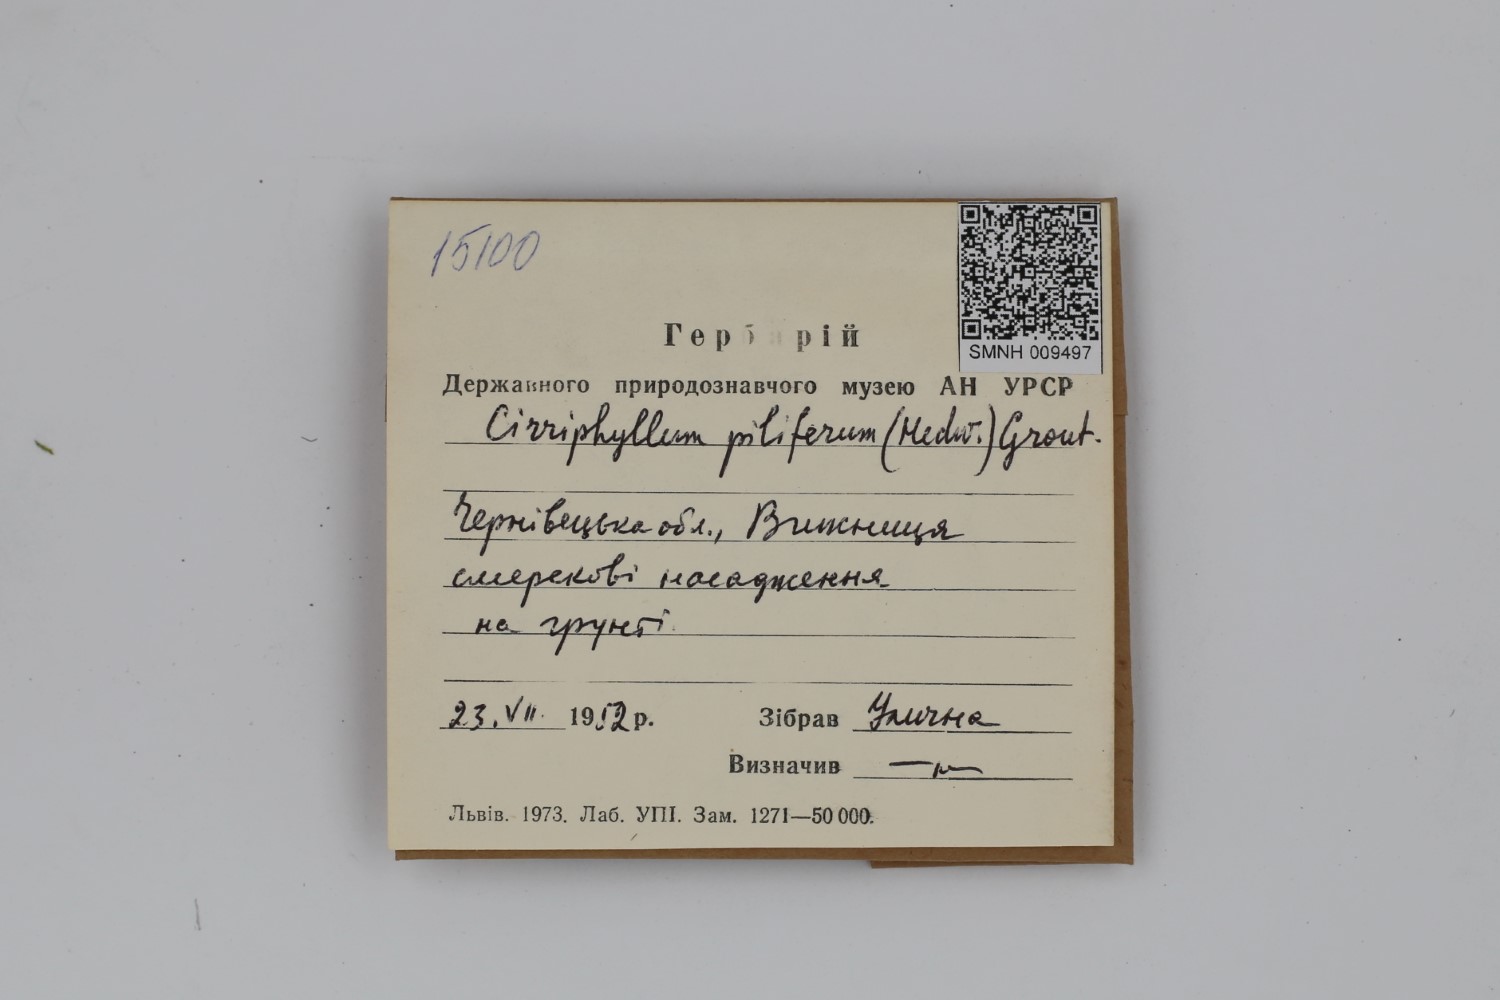 15100
SMNH 009497
Гербарій
Державного природознавчого музею АН УРСР
Cirriphyllum piliferum (Hedw.) Grout.
Чернівецька обл., Вижниця
смерекові насадження
на грунті
23.VII 1952 р. Зібрав Улична
Визначив —"—
Львів. 1973. Лаб. УПІ. Зам. 1271—50 000.